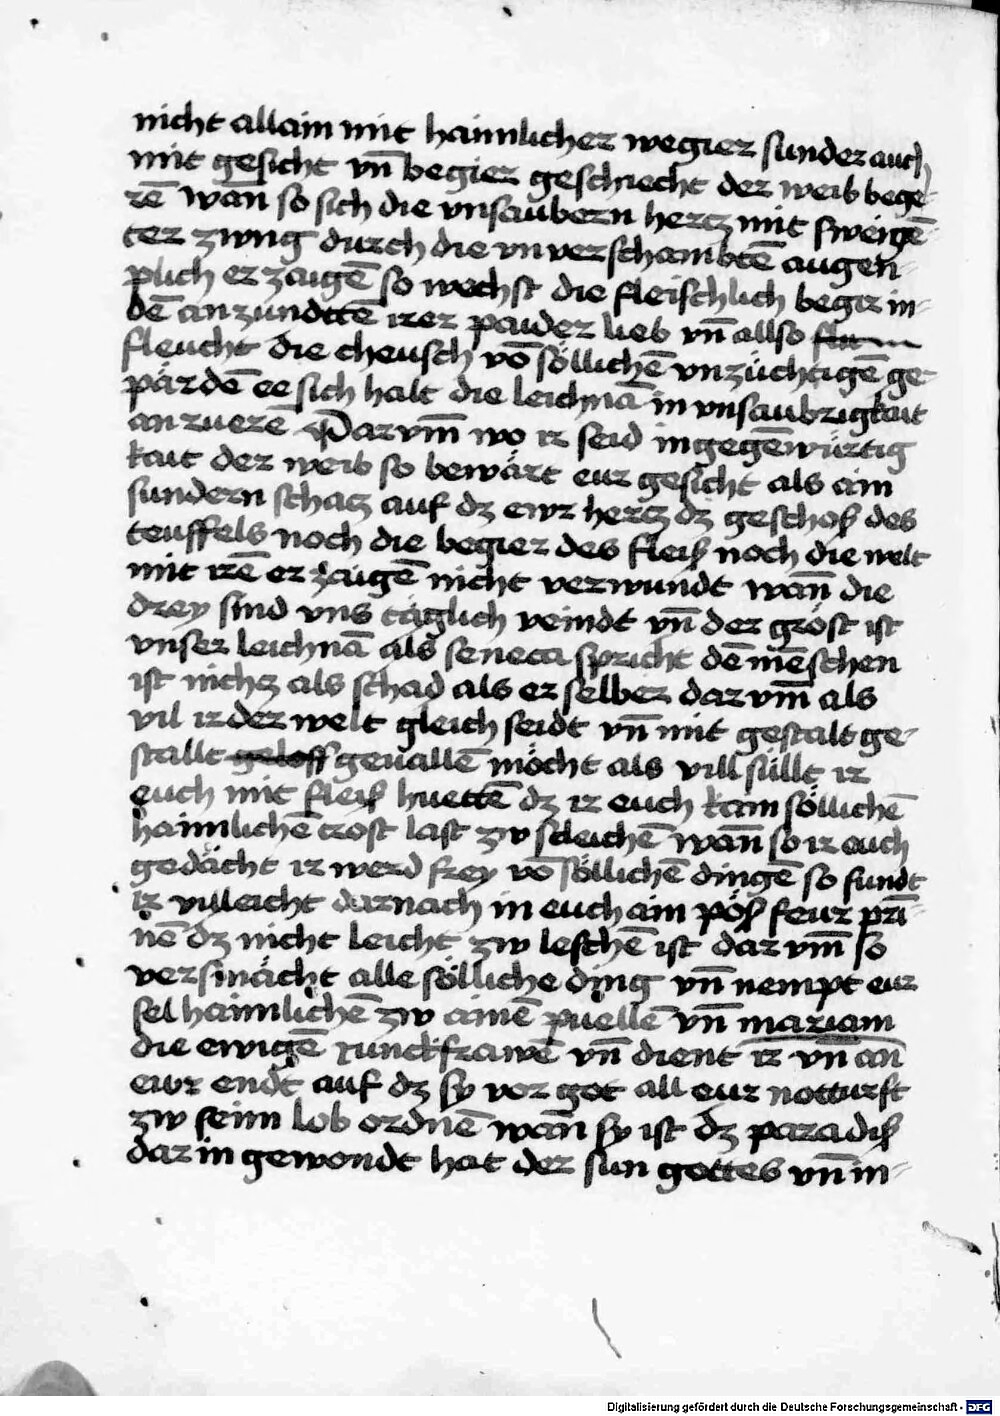 nicht allain mit haimlicher wegier sunder auch
mit gesicht vn̄ begier geschiecht der weib bege-
rē wan̄ so sich die vnsaubern hertz mit sweigē-
ter zwng durch die vnverschambtē augen-
plich erzaigē so wechst die fleischlich begir in-
dē anzundttē irer paider lieb vn̄ allso
fleucht die cheusch vō söllichē vnzüchtigē ge-
pärdē ee sich halt die leichnā in vnsaubrigkait
an zuerē Darvm̄ wo ir seid in gegēwürtig
kait der weib so bewärt eur gesicht als ain
sundern schatz auf dz ewr hertz dz geschoß des
teuffels noch die begier des fleiß noch die welt
mit irē erzaigē nicht verwundt wan̄ die
drey sind vns täglich veindt vn̄ der gröst ist
vnser leichnā als seneca spricht dē mēschen
ist nichtz als schad als er selber darvm̄ als
vil ir der welt gleich seidt vn̄ mit gestalt ge-
stallt geloff geuallē möcht als vill süllt ir
euch mit fleiß huettē dz ir euch kain söllichē
haimlichē trost last zw scleichē wan̄ so ir euch
gedächt ir werd frey vō söllichē dingē so fundt
ir villeicht darnach in euch ain pöß feur pri-
nē dz nicht leicht zw leschē ist darvm̄ so
versmächt alle sölliche ding vn̄ nempt eur
sel haimlichē zw ainē puellē vn̄ mariam
die ewigē iunckfrawē vn̄ dient ir vn̄ an
ewr endt auf dz sy vor got all eur notturft
zw seim lob ordnē wan̄ sy ist dz paradiß
dar in gewondt hat der sun gottes vn̄ in-
Digitalisierung gefördert durch die Deutsche Forschungsgemeinschaft - DFG